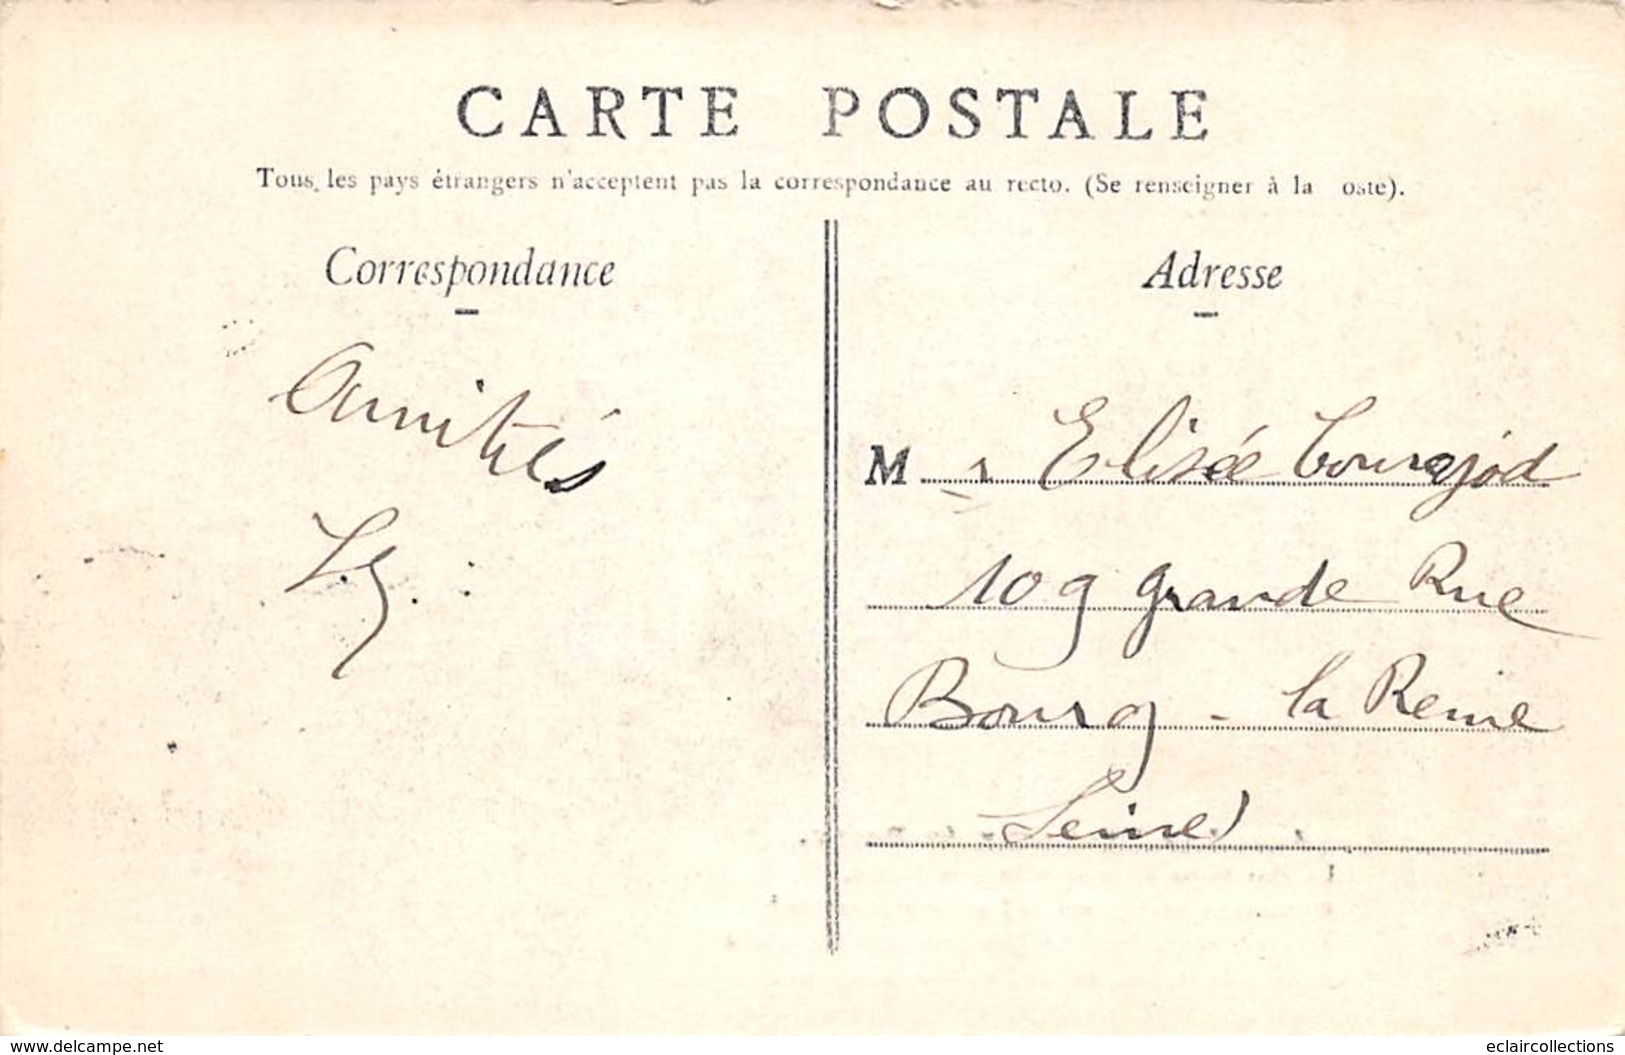 CARTE POSTALE
Tous les pays étrangers n'acceptent pas la correspondance au recto. (Se renseigner à la oste).
Correspondance
Adresse
Amitiés
M r Elisée
109 grande Rue
Bourg-la Reine
Seine
www.delcampe.net
eclaircollections